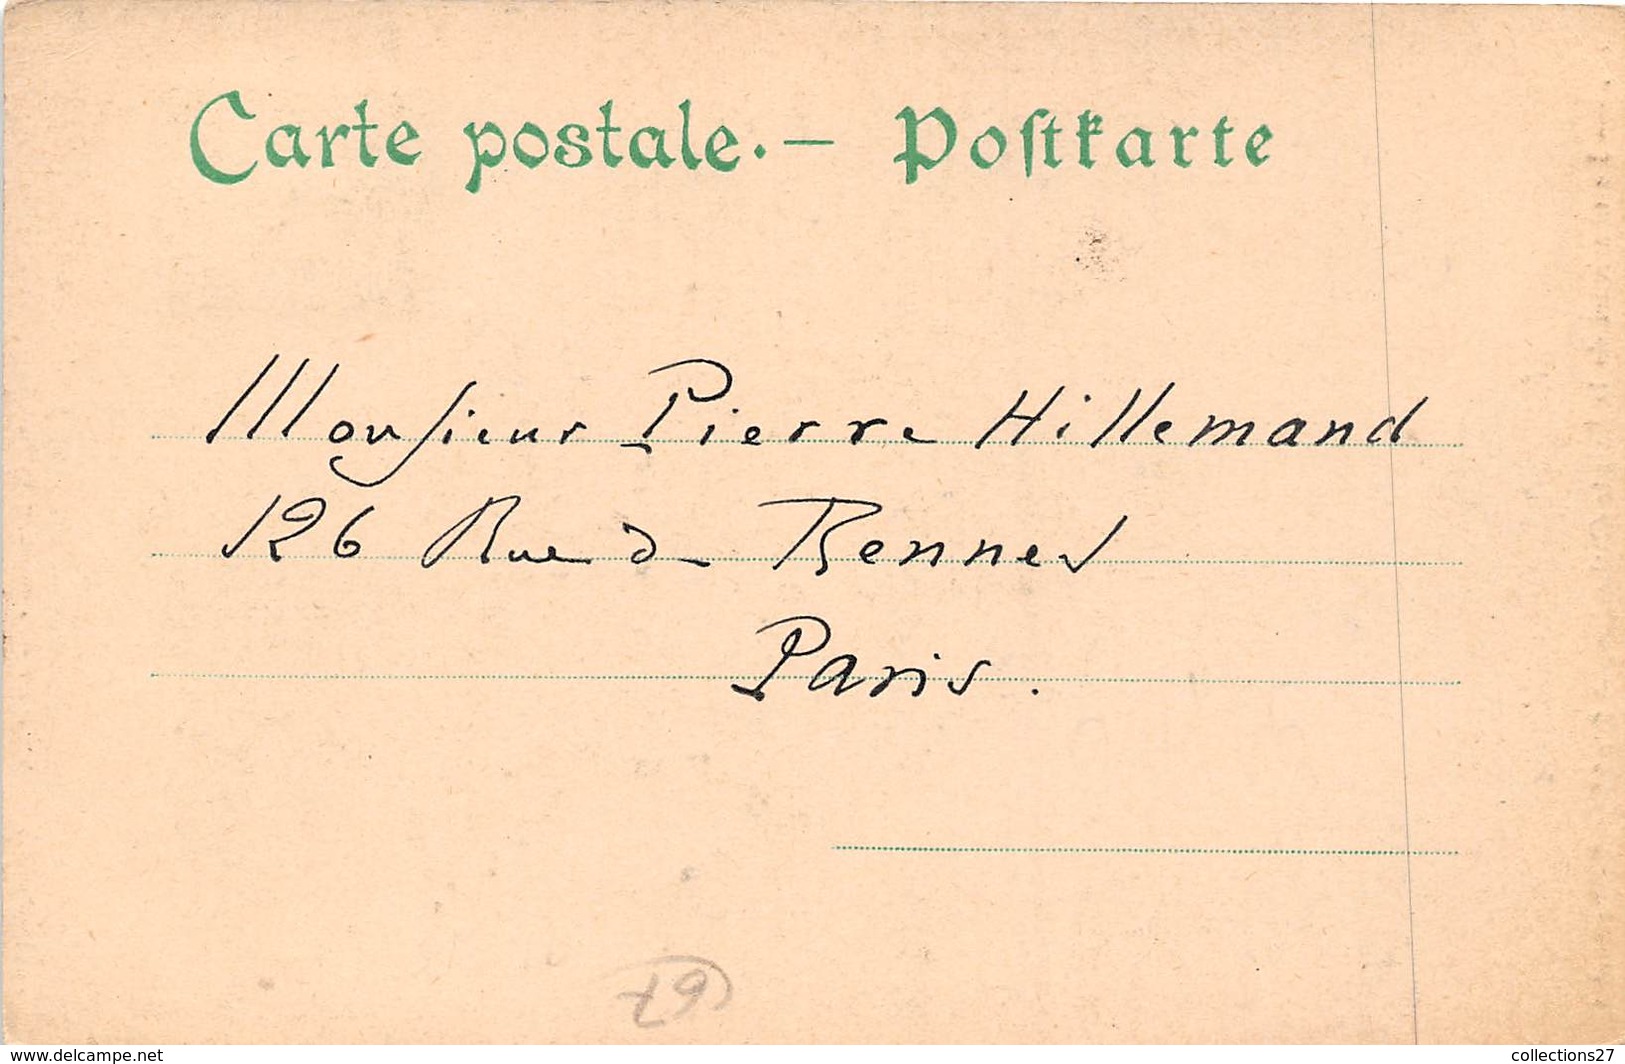 Carte postale. — Poſtkarte
Monsieur Pierre Hillemand
126 Rue de Rennes
Paris.
67
www.delcampe.net
collections27